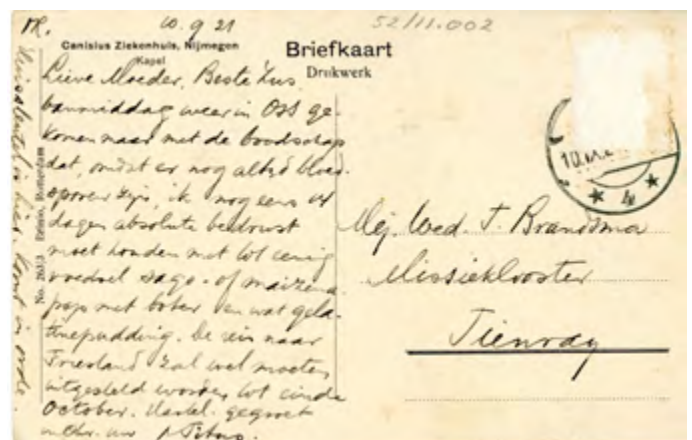 10.9 21
52/11.002
Canisius Ziekenhuis, Nijmegen
Kapel
Briefkaart
Drukwerk
Lieve Moeder, Beste Zus
vanmiddag weer in Oss ge-
komen maar met de boodschap
dat, omdat er nog altijd bloed-
sporen zijn, ik nog eens 14
dagen absolute bedrust
moet houden met tot eenig
voedsel sago- of maizena
pap met boter en wat gela-
tinepudding. De reis naar
Friesland zal wel moeten
uitgesteld worden tot einde
October. Hartel. gegroet
in Chr. uw Titus.
Huissleutel is hier. Komt in orde.
No. 263/3 Rotterdam
Mej. Wed. T. Brandsma
Missieklooster
Tienray
10.IX.
4